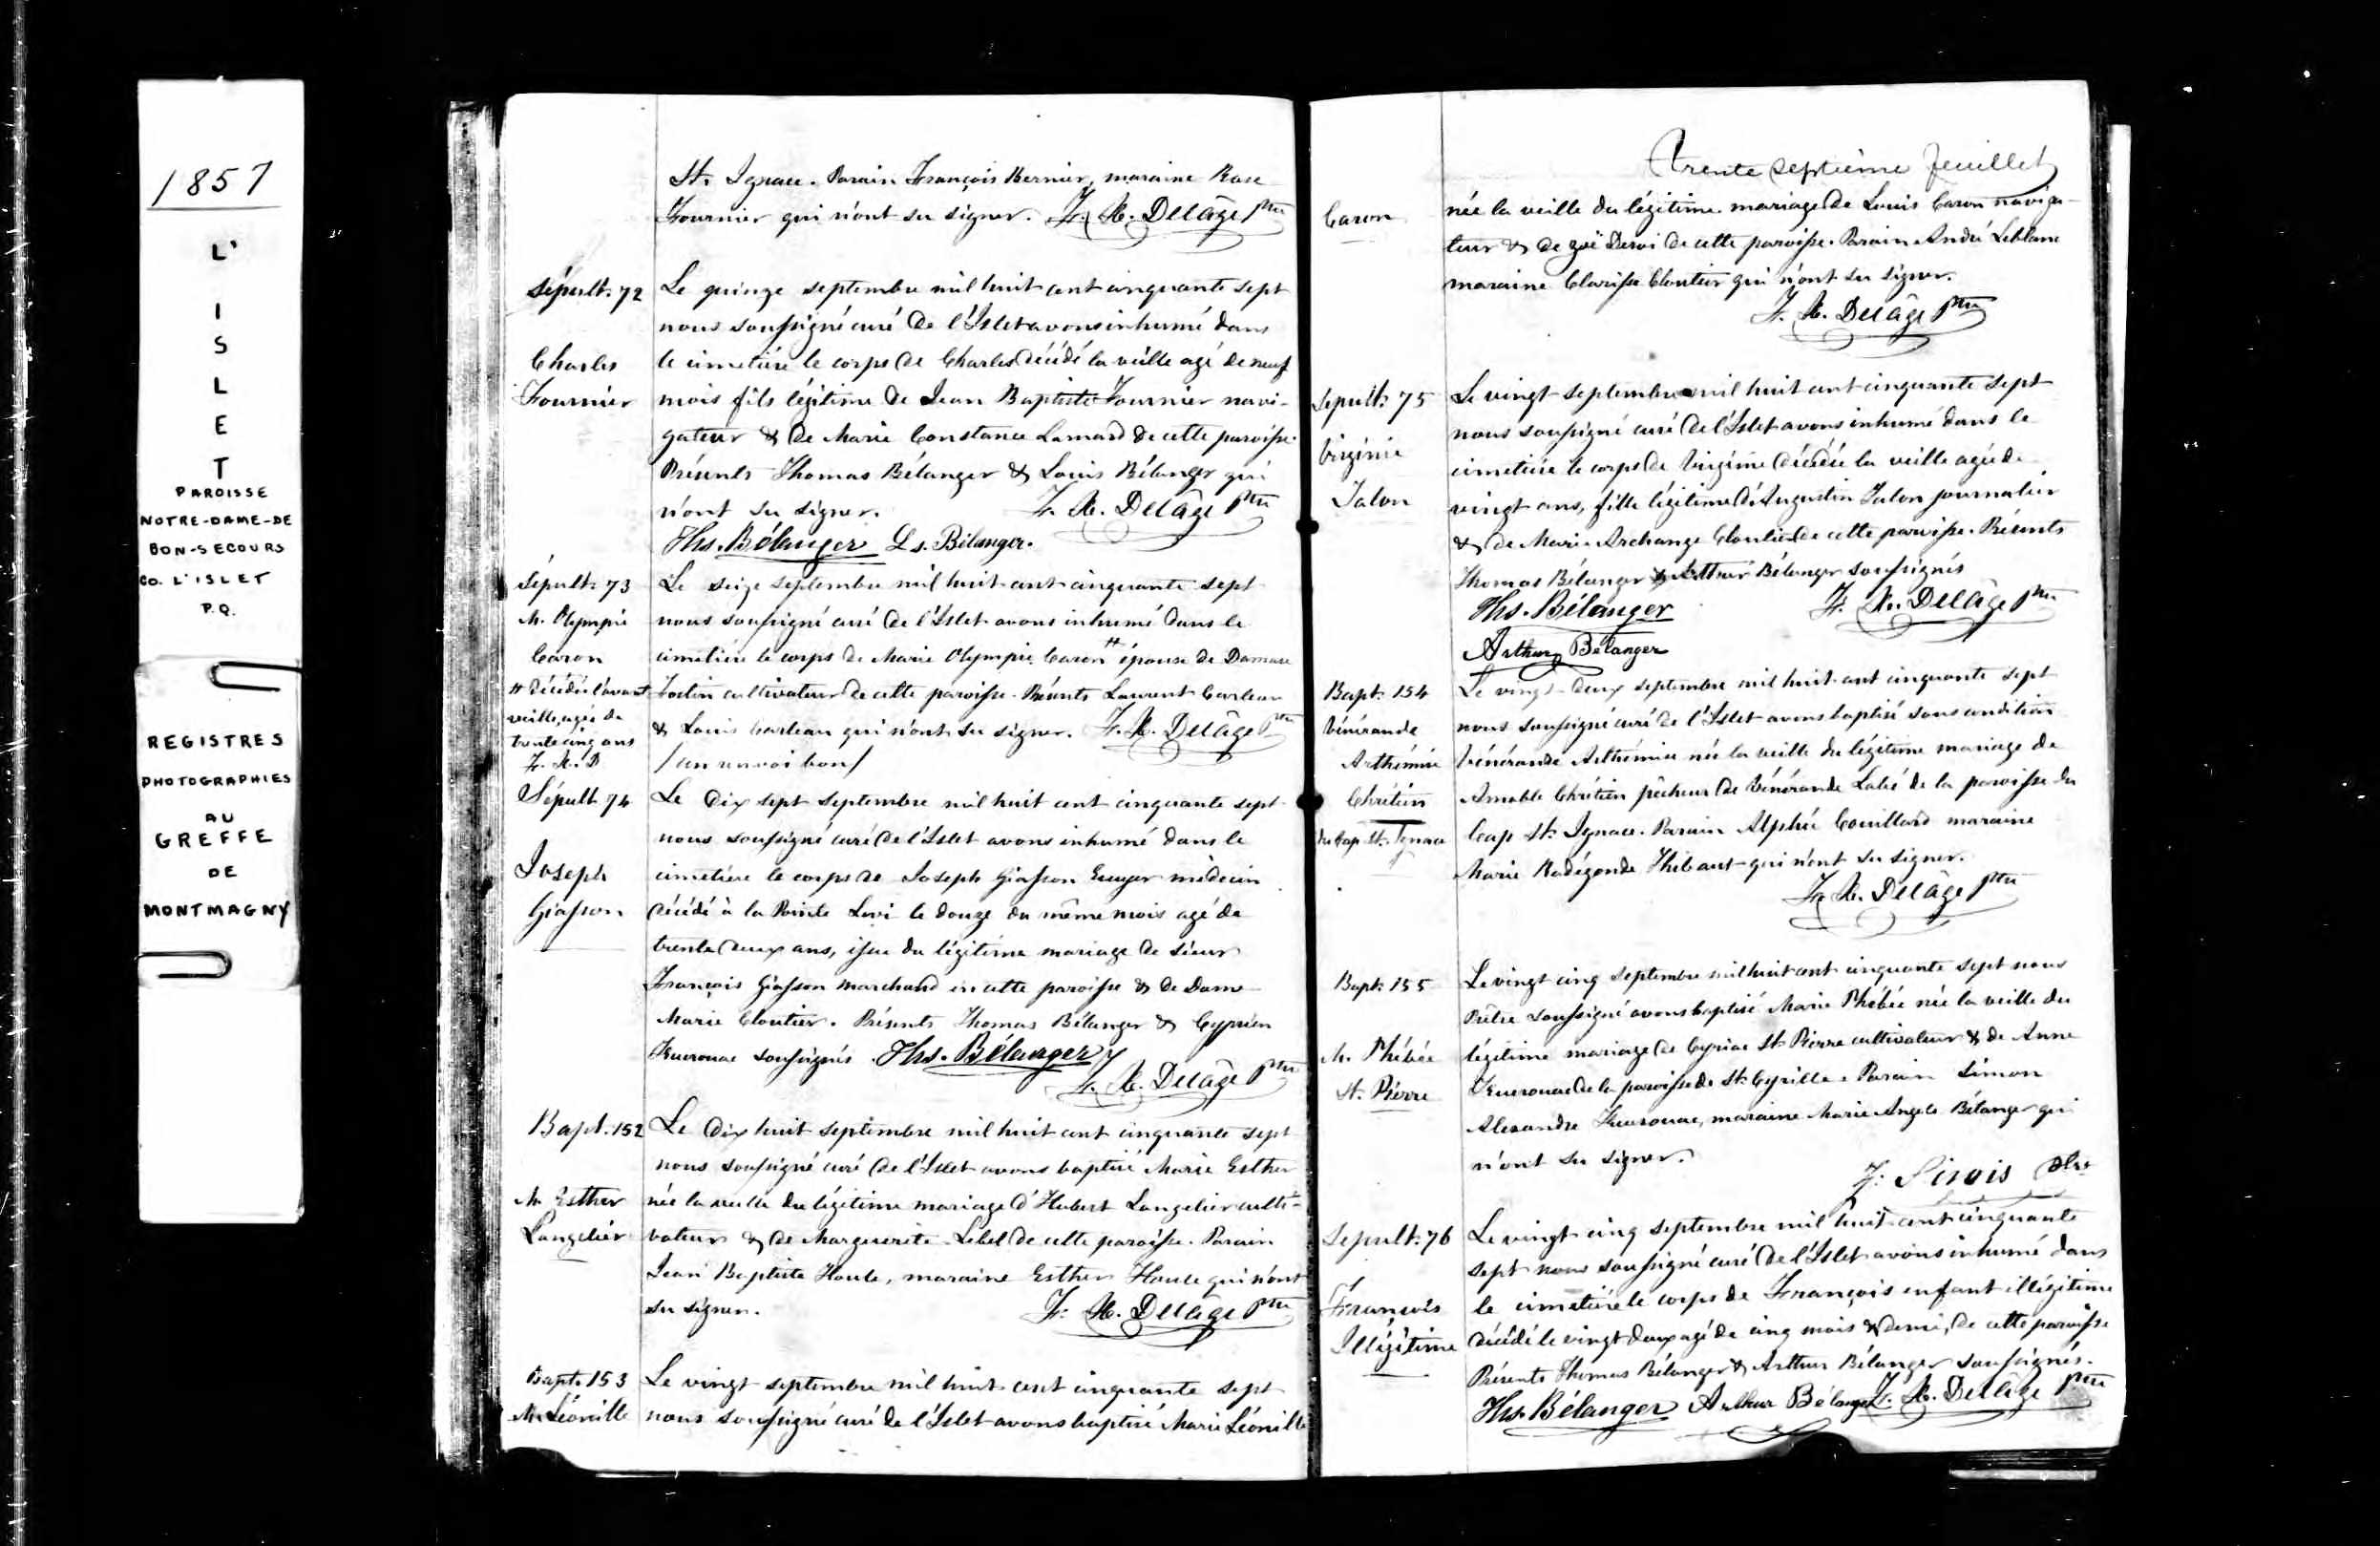 1857
L'
I
S
L
E
T
PAROISSE
NOTRE-DAME-DE
BON-SECOURS
CO. L'ISLET
P.Q.
REGISTRES
PHOTOGRAPHIES
AU
GREFFE
DE
MONTMAGNY
St. Ignace. Parain François Bernier, maraine Rose
Fournier qui n'ont su signer. F. X. Delâge Ptre
Sépult. 72
Charles
Fournier
Le quinze septembre mil huit cent cinquante sept
nous soussigné curé de l'Islet avons inhumé dans
le cimetière le corps de Charles décédé la veille agé de neuf
mois fils légitime de Jean Baptiste Fournier navi-
gateur & de Marie Constance Lamard de cette paroisse.
Présents Thomas Bélanger & Louis Bélanger qui
n'ont su signer. F. X. Delâge Ptre
Ths. Bélanger Ls. Bélanger.
Sépult. 73
M. Olympie
Caron
# décédée l'avant
veille, agée de
trente cinq ans
F. X. D
Le seize septembre mil huit cent cinquante sept
nous soussigné curé de l'Islet avons inhumé dans le
cimetière le corps de Marie Olympie Caron # épouse de Damase
cultivateur de cette paroisse. Présents Laurent Carleau
& Louis Carleau qui n'ont su signer. F. X. Delâge Ptre
/un renvoi bon/
Sépult. 74
Joseph
Giasson
Le dix sept septembre mil huit cent cinquante sept
nous soussigné curé de l'Islet avons inhumé dans le
cimetière le corps de Joseph Giasson Ecuyer médecin
décédé à la Pointe Levi le douze du même mois agé de
trente deux ans, issu du légitime mariage de Sieur
François Giasson marchand en cette paroisse & de Dame
Marie Cloutier. Présents Thomas Bélanger & Cyprien
Kuerouac soussignés. Ths. Bélanger
F. X. Delâge Ptre
Bapt. 152
M. Esther
Langelier
Le dix huit septembre mil huit cent cinquante sept
nous soussigné curé de l'Islet avons baptisé Marie Esther
née la veille du légitime mariage d'Hubert Langelier culti-
vateur & de Marguerite Lebel de cette paroisse. Parain
Jean Baptiste Houle, maraine Esther Houle qui n'ont
su signer. F. X. Delâge Ptre
Bapt. 153
M. Léonille
Le vingt septembre mil huit cent cinquante sept
nous soussigné curé de l'Islet avons baptisé Marie Léonille
Trente septième feuillet
Caron
née la veille du légitime mariage de Louis Caron naviga-
teur & de Zoé de cette paroisse. Parain André Leblanc
maraine Clarisse Cloutier qui n'ont su signer.
F. X. Delâge Ptre
Sepult. 75
Virginie
Talon
Le vingt septembre mil huit cent cinquante sept
nous soussigné curé de l'Islet avons inhumé dans le
cimetière le corps de Virginie décédée la veille agée de
vingt ans, fille légitime d'Augustin Talon journalier
& de Marie Archange Cloutier de cette paroisse. Présents
Thomas Bélanger & Arthur Bélanger soussignés
Ths. Bélanger F. X. Delâge Ptre
Arthur Bélanger
Bapt. 154
Vénérande
Arthémise
Chrétien
du Cap St. Ignace
Le vingt-deux septembre mil huit cent cinquante sept
nous soussigné curé de l'Islet avons baptisé sous condition
Vénérande Arthémise née la veille du légitime mariage de
Amable Chrétien pêcheur de Vénérande de la paroisse du
Cap St. Ignace. Parain Alphée Couillard maraine
Marie Radégonde Thibaut qui n'ont su signer.
F. X. Delâge Ptre
Bapt. 155
M. Phébée
St. Pierre
Le vingt cinq septembre mil huit cent cinquante sept nous
Prêtre soussigné avons baptisé Marie Phébée née la veille du
légitime mariage de Cyriac St. Pierre cultivateur & de Anne
Kuerouac de la paroisse de St. Cyrille. Parain Simon
Alexandre Kuerouac, maraine Marie Angele Bélanger qui
n'ont su signer.
F. Sirois Ptre
Sepult. 76
François
Illégitime
Le vingt cinq septembre mil huit cent cinquante
sept nous soussigné curé de l'Islet avons inhumé dans
le cimetière le corps de François enfant illégitime
décédé le vingt deux agé de cinq mois & demi, de cette paroisse
Présents Thomas Bélanger & Arthur Bélanger soussignés.
Ths. Bélanger Arthur Bélanger F. X. Delâge Ptre